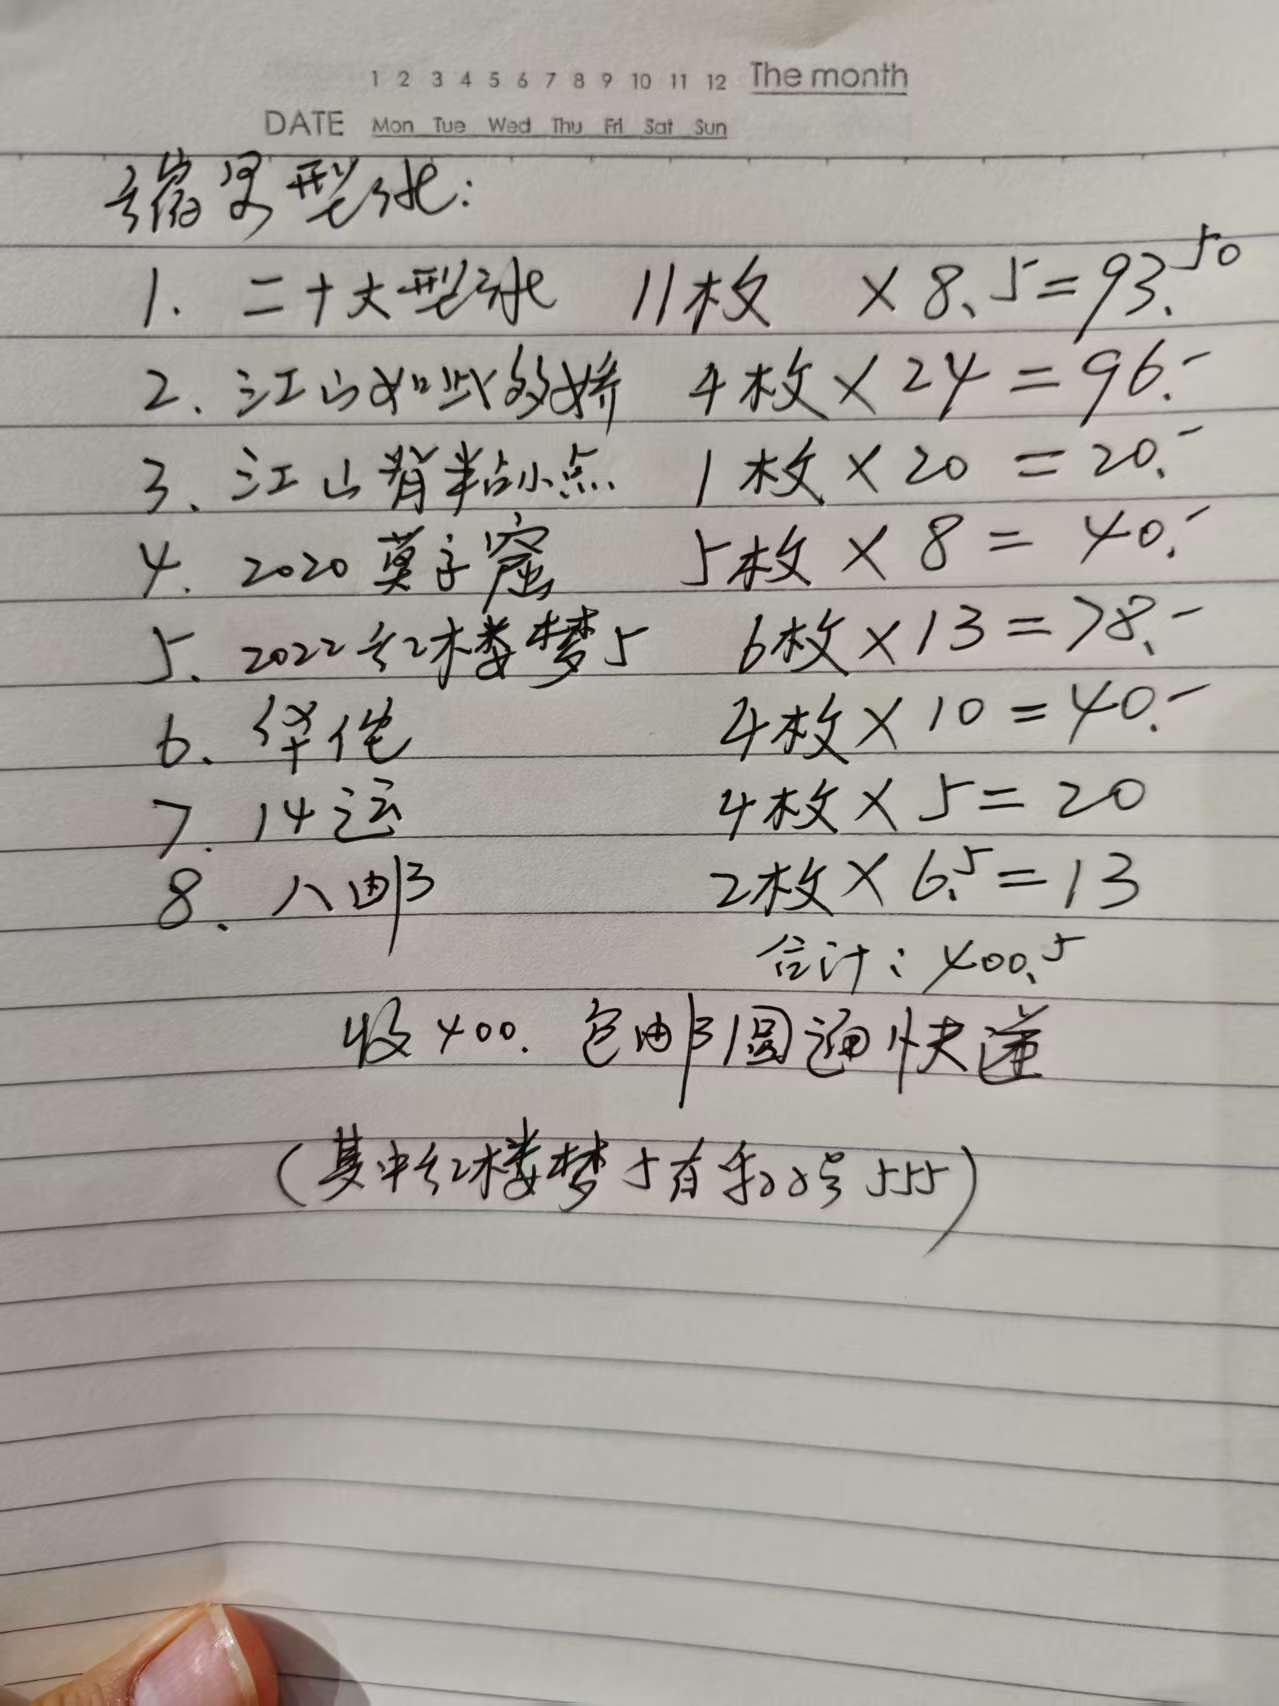 1 2 3 4 5 6 7 8 9 10 11 12 The month
DATE Mon Tue Wed Thu Fri Sat Sun
缩另型张:
1. 二十大型张 11枚 ×8.5=93.50
2. 江山如此多娇 4枚×24=96.-
3. 江山背粘小点 1枚×20=20.-
4. 2020莫高窟 5枚×8=40.-
5. 2022红楼梦5 6枚×13=78.-
6. 华佗 4枚×10=40.-
7. 14运 4枚×5=20
8. 八邮 2枚×6.5=13
合计: 400.5
收400. 包邮圆通快递
(其中红楼梦5有科号555)